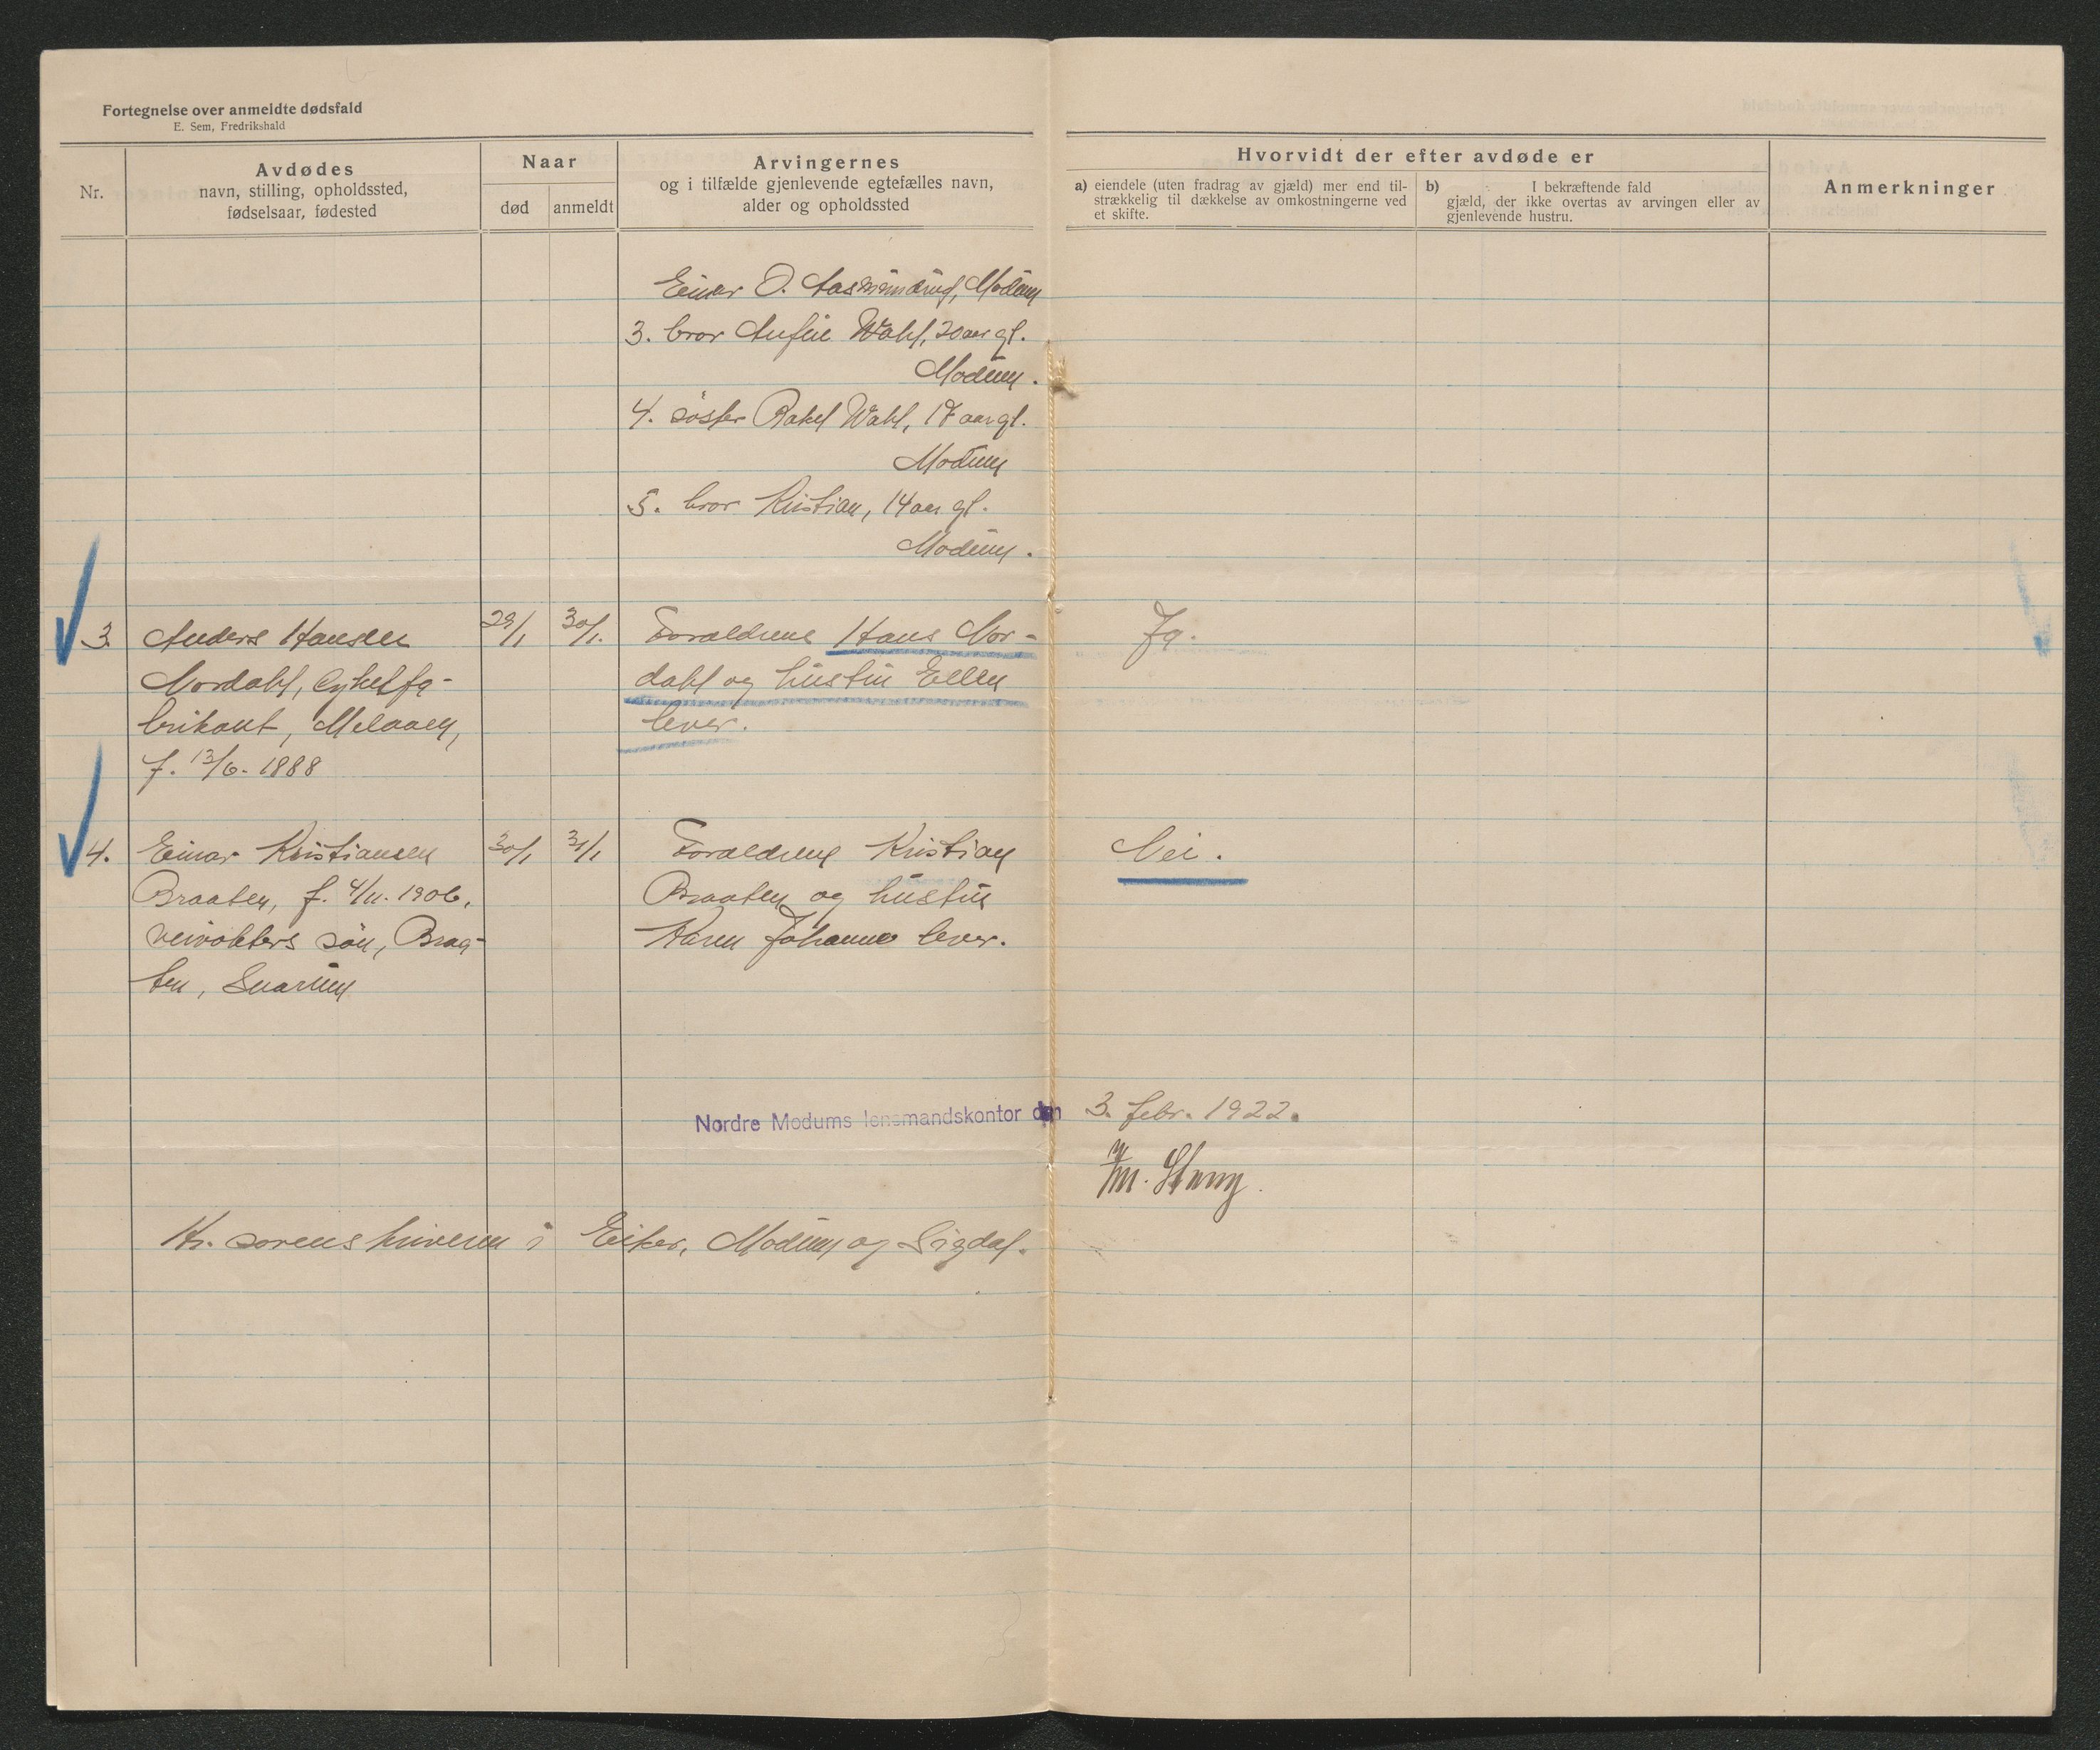 Fortegnelse over anmeldte dødsfald
E. Sem, Fredrikshald
Nr.
Avdødes
navn, stilling, opholdssted,
fødselsaar, fødested
Naar
død
anmeldt
Arvingernes
og i tilfælde gjenlevende egtefælles navn,
alder og opholdssted
Hvorvidt der efter avdøde er
a) eiendele (uten fradrag av gjæld) mer end til-
strækkelig til dækkelse av omkostningerne ved
et skifte.
b) I bekræftende fald
gjæld, der ikke overtas av arvingen eller av
gjenlevende hustru.
Anmerkninger
Einar O. Aasmundrud, Modum
3. bror Anfin Wahl, 20 aar gl.
Modum.
4. søster Rakel Wahl, 17 aar gl.
Modum
5. bror Kristian, 14 aar gl.
Modum.
3. Anders Hansen 29/1 30/1. Forældrene Hans Nor- Ja.
Nordahl, Cykelfa- dahl og hustru Ellen
brikant, Melaaen, lever.
f. 13/6-1888
4. Einar Kristiansen 30/1 31/1 Forældrene Kristian Nei.
Braaten, f. 4/11.1906, Braaten og hustru
veivokters søn, Braa- Karen Johanne lever.
ten, Snarum
Nordre Modums lensmandskontor den 3. febr. 1922.
M. Stang.
Hr. sorenskriveren i Eiker, Modum og Sigdal.